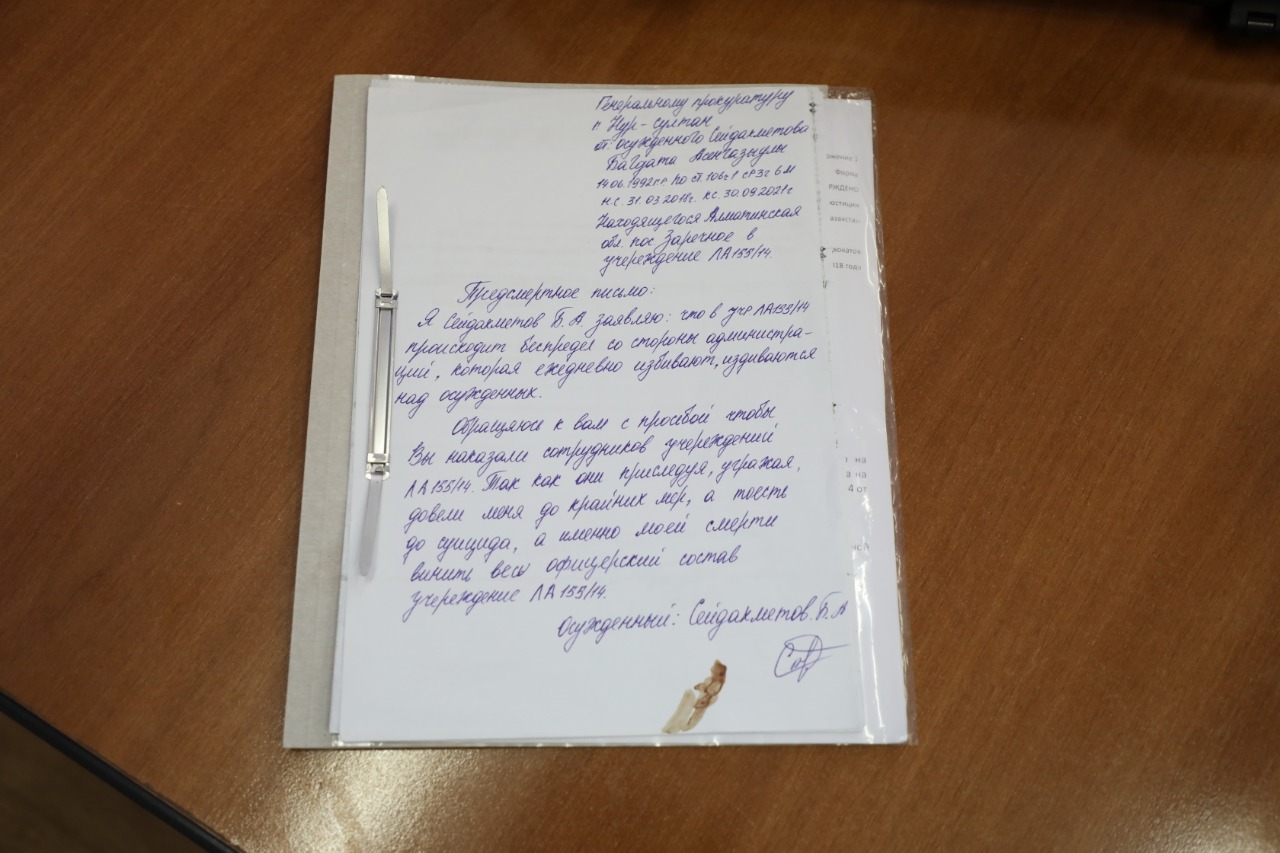 Генеральному прокуратуру
г. Нур-султан
от: осужденного Сейдахметова
Багдата Асенгазыулы
14.06.1992г.р. по ст. 106ч1 ср 3г 6м
н.с. 31.03.2018г. к.с. 30.09.2021г
Находящегося Алматинская
обл. пос Заречное в
учереждение ЛА155/14.
Предсмертное письмо:
Я Сейдахметов Б.А. заявляю: что в учр ЛА155/14
происходит беспредел со стороны администра-
ций, которая ежедневно избивают, издиваются
над осужденных.
Обращяюсь к вам с прозбой чтобы
Вы наказали сотрудников учереждений
ЛА155/14. Так как они приследуя, угражая,
довели меня до крайних мер, а тоесть
до суицида, а именно моей смерти
винить весь офицерский состав
учереждение ЛА155/14.
осужденный: Сейдахметов.Б.А
ожение 1
Форма
РЖДЕНО
юстиции
азахстан
вокатов
018 года
т на
а на
4 от
ной